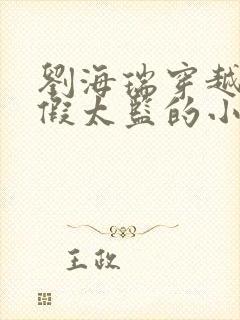 劉海瑞穿越
假太監的小
王政